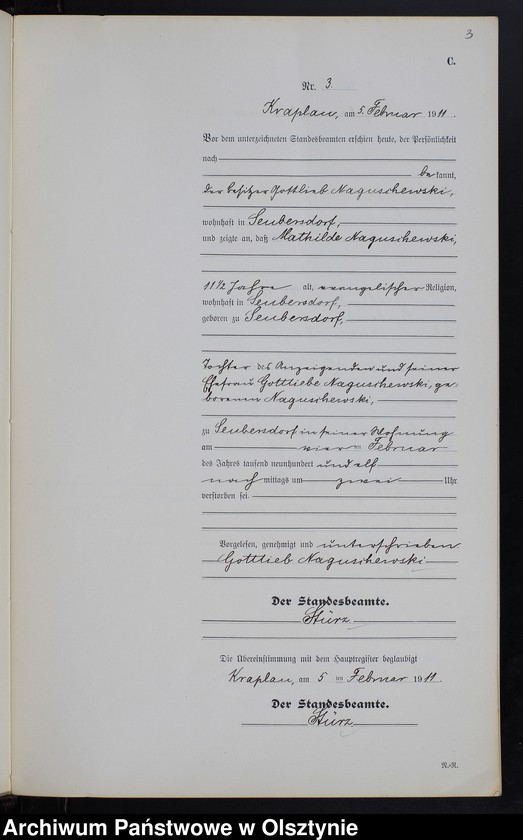 3
C.
Nr. 3.
Kraplau, am 5. Februar 1911.
Vor dem unterzeichneten Standesbeamten erschien heute, der Persönlichkeit
nach
bekannt,
der Besitzer Gottlieb Naguschewski,
wohnhaft in Seubersdorf,
und zeigte an, daß Mathilde Naguschewski,
11 1/2 Jahre alt, evangelischer Religion,
wohnhaft in Seubersdorf,
geboren zu Seubersdorf,
Tochter des Anzeigenden und seiner
Ehefrau Gottliebe Naguschewski, ge-
borenen Naguschewski,
zu Seubersdorf in seiner Wohnung
am vierten Februar
des Jahres tausend neunhundert und elf
nachmittags um zwei Uhr
verstorben sei.
Vorgelesen, genehmigt und unterschrieben
Gottlieb Naguschewski
Der Standesbeamte.
Stürz
Die Übereinstimmung mit dem Hauptregister beglaubigt
Kraplau, am 5 ten Februar 1911.
Der Standesbeamte.
Stürz
N.-R.
Archiwum Państwowe w Olsztynie